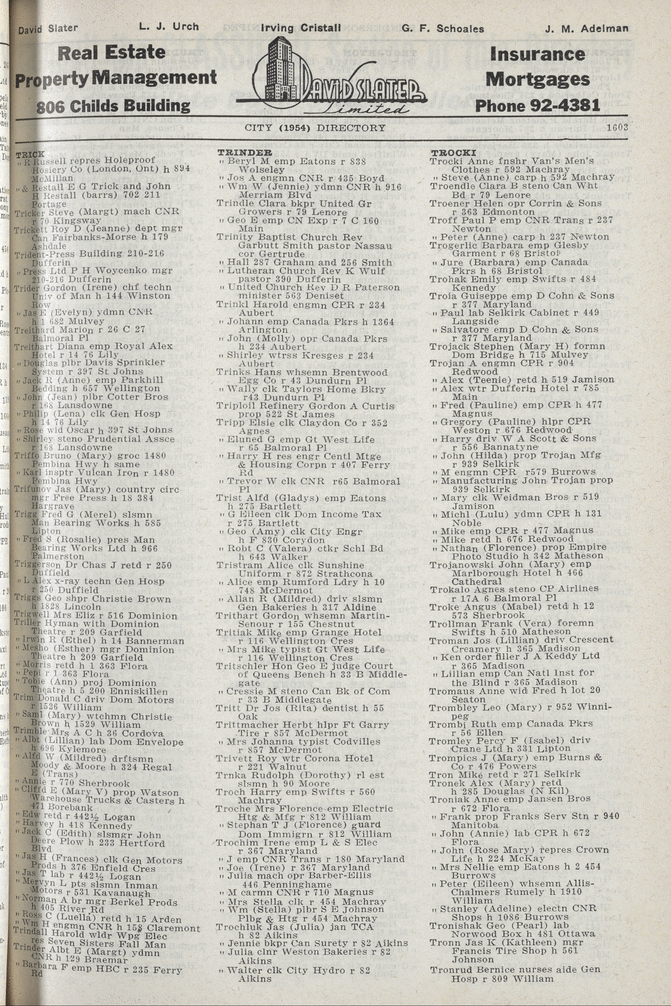 David Slater L. J. Urch Irving Cristall G. F. Schoales J. M. Adelman
Real Estate
Property Management
806 Childs Building
DAVID SLATER
Limited
Insurance
Mortgages
Phone 92-4381
CITY (1954) DIRECTORY 1603
TRICK
" E Russell repres Holeproof
Hosiery Co (London, Ont) h 894
McMillan
" & Restall E G Trick and John
H Restall (barrs) 702 211
Portage
Tricker Steve (Margt) mach CNR
r 70 Kingsway
Trickett Roy D (Jeanne) dept mgr
Can Fairbanks-Morse h 179
Ashdale
Trident-Press Building 210-216
Dufferin
" Press Ltd P H Woycenko mgr
210-216 Dufferin
Trider Gordon (Irene) chf techn
Univ of Man h 144 Winston
Row
" Jas E (Evelyn) ydmn CNR
h 1 682 Mulvey
Treithard Marion r 26 C 27
Balmoral Pl
Treithart Diana emp Royal Alex
Hotel r 14 76 Lily
" Douglas plbr Davis Sprinkler
System r 397 St Johns
" Jack R (Anne) emp Parkhill
Bedding h 657 Wellington
" John (Jean) plbr Cotter Bros
r 168 Lansdowne
" Philip (Lena) clk Gen Hosp
h 14 76 Lily
" Rose wid Oscar h 397 St Johns
" Shirley steno Prudential Assce
r 168 Lansdowne
Triffo Bruno (Mary) groc 1480
Pembina Hwy h same
" Karl insptr Vulcan Iron r 1480
Pembina Hwy
Trifunov Jas (Mary) country circ
mgr Free Press h 18 384
Hargrave
Trigg Fred G (Merel) slsmn
Man Bearing Works h 585
Lipton
" Fred S (Rosalie) pres Man
Bearing Works Ltd h 966
Palmerston
Triggerson Dr Chas J retd r 250
Duffield
" L Alex x-ray techn Gen Hosp
r 250 Duffield
Triggs Geo shpr Christie Brown
h 1828 Lincoln
Trigwell Mrs Eliz r 516 Dominion
Triller Hyman with Dominion
Theatre r 209 Garfield
" Irwin R (Ethel) h 14 Bannerman
" Mesho (Esther) mgr Dominion
Theatre h 209 Garfield
" Morris retd h 1 363 Flora
" Pepi r 1 363 Flora
" Tobie (Ann) proj Dominion
Theatre h 5 200 Enniskillen
Trim Donald C driv Dom Motors
r 1526 William
" Saml (Mary) wtchmn Christie
Brown h 1529 William
Trimble Mrs A C h 36 Cordova
" Albt (Lillian) lab Dom Envelope
h 696 Kylemore
" Alfd W (Mildred) drftsmn
Moody & Moore h 324 Regal
E (Trans)
" Annie r 770 Sherbrook
" Cliffd E (Mary V) prop Watson
Warehouse Trucks & Casters h
471 Borebank
" Edw retd r 442½ Logan
" Harvey h 418 Kennedy
" Jack C (Edith) slsmgr John
Deere Plow h 233 Hertford
Blvd
" Jas H (Frances) clk Gen Motors
Prods h 376 Enfield Cres
" Jas T lab r 442½ Logan
" Mervyn L pts slsmn Inman
Motors r 531 Kavanaugh
" Norman A br mgr Berkel Prods
h 405 River Rd
" Ross C (Luella) retd h 15 Arden
" Wm H engmn CNR h 15½ Claremont
Trindall Harold wldr Wpg Elec
res Seven Sisters Fall Man
Trinder Albt E (Margt) ydmn
CNR h 129 Braemar
" Barbara F emp HBC r 235 Ferry
Rd
TRINDER
" Beryl M emp Eatons r 838
Wolseley
" Jos A engmn CNR r 435 Boyd
" Wm W (Jennie) ydmn CNR h 916
Merriam Blvd
Trindle Clara bkpr United Gr
Growers r 79 Lenore
" Geo E emp CN Exp r 7 C 160
Main
Trinity Baptist Church Rev
Garbutt Smith pastor Nassau
cor Gertrude
" Hall 287 Graham and 256 Smith
" Lutheran Church Rev K Wulf
pastor 390 Dufferin
" United Church Rev D R Paterson
minister 563 Deniset
Trinkl Harold engmn CPR r 234
Aubert
" Johann emp Canada Pkrs h 1364
Arlington
" John (Molly) opr Canada Pkrs
h 234 Aubert
" Shirley wtrss Kresges r 234
Aubert
Trinks Hans whsemn Brentwood
Egg Co r 43 Dundurn Pl
" Wally clk Taylors Home Bkry
r43 Dundurn Pl
Triploil Refinery Gordon A Curtis
prop 522 St James
Tripp Elsie clk Claydon Co r 352
Agnes
" Eluned G emp Gt West Life
r 65 Balmoral Pl
" Harry H res engr Centl Mtge
& Housing Corpn r 407 Ferry
Rd
" Trevor W clk CNR r65 Balmoral
Pl
Trist Alfd (Gladys) emp Eatons
h 275 Bartlett
" G Eileen clk Dom Income Tax
r 275 Bartlett
" Geo (Amy) clk City Engr
h F 830 Corydon
" Robt C (Valera) ctkr Schl Bd
h 643 Walker
Tristram Alice clk Sunshine
Uniform r 872 Strathcona
" Alice emp Rumford Ldry h 10
748 McDermot
" Allan R (Mildred) driv slsmn
Gen Bakeries h 317 Aldine
Trithart Gordon whsemn Martin-
Senour r 155 Chestnut
Tritiak Mike emp Grange Hotel
r 116 Wellington Cres
" Mrs Mike typist Gt West Life
r 116 Wellington Cres
Tritschler Hon Geo E judge Court
of Queens Bench h 33 B Middle-
gate
" Cressie M steno Can Bk of Com
r 33 B Middlegate
Tritt Dr Jos (Rita) dentist h 55
Oak
Trittmacher Herbt hlpr Ft Garry
Tire r 857 McDermot
" Mrs Johanna typist Codvilles
r 857 McDermot
Trivett Roy wtr Corona Hotel
r 221 Walnut
Trnka Rudolph (Dorothy) rl est
slsmn h 90 Moore
Troch Harry emp Swifts r 560
Machray
Troche Mrs Florence emp Electric
Htg & Mfg r 812 William
" Stephan T J (Florence) guard
Dom Immigrn r 812 William
Trochim Irene emp L & S Elec
r 367 Maryland
" J emp CNR Trans r 180 Maryland
" Joe (Irene) r 367 Maryland
" Julia mach opr Barber-Ellis
446 Penninghame
" M carmn CNR r 710 Magnus
" Mrs Stella clk r 454 Machray
" Wm (Stella) plbr S E Johnson
Plbg & Htg r 454 Machray
Trochluk Jas (Julia) jan TCA
h 82 Aikins
" Jennie bkpr Can Surety r 82 Aikins
" Julia clnr Weston Bakeries r 82
Aikins
" Walter clk City Hydro r 82
Aikins
TROCKI
Trocki Anne fnshr Van's Men's
Clothes r 592 Machray
" Steve (Anne) carp h 592 Machray
Troendle Clara B steno Can Wht
Bd r 79 Lenore
Troener Helen opr Corrin & Sons
r 363 Edmonton
Troff Paul P emp CNR Trans r 237
Newton
" Peter (Anne) carp h 237 Newton
Trogerlic Barbara emp Glesby
Garment r 68 Bristol
" Jure (Barbara) emp Canada
Pkrs h 68 Bristol
Trohak Emily emp Swifts r 484
Kennedy
Troia Guiseppe emp D Cohn & Sons
r 377 Maryland
" Paul lab Selkirk Cabinet r 449
Langside
" Salvatore emp D Cohn & Sons
r 377 Maryland
Trojack Stephen (Mary H) formn
Dom Bridge h 715 Mulvey
Trojan A engmn CPR r 904
Redwood
" Alex (Teenie) retd h 519 Jamison
" Alex wtr Dufferin Hotel r 785
Main
" Fred (Pauline) emp CPR h 477
Magnus
" Gregory (Pauline) hlpr CPR
Weston r 676 Redwood
" Harry driv W A Scott & Sons
r 556 Bannatyne
" John (Hilda) prop Trojan Mfg
r 939 Selkirk
" M engmn CPR r579 Burrows
" Manufacturing John Trojan prop
939 Selkirk
" Mary clk Weidman Bros r 519
Jamison
" Michl (Lulu) ydmn CPR h 131
Noble
" Mike emp CPR r 477 Magnus
" Mike retd h 676 Redwood
" Nathan (Florence) prop Empire
Photo Studio h 342 Matheson
Trojanowski John (Mary) emp
Marlborough Hotel h 466
Cathedral
Trokalo Agnes steno CP Airlines
r 17A 6 Balmoral Pl
Troke Angus (Mabel) retd h 12
573 Sherbrook
Trollman Frank (Vera) foremn
Swifts h 510 Matheson
Troman Jos (Lillian) driv Crescent
Creamery h 365 Madison
" Ken order filler J A Keddy Ltd
r 365 Madison
" Lillian emp Can Natl Inst for
the Blind r 365 Madison
Tromaus Anne wid Fred h lot 20
Seaton
Trombley Leo (Mary) r 952 Winni-
peg
Trombj Ruth emp Canada Pkrs
r 56 Ellen
Tromley Percy F (Isabel) driv
Crane Ltd h 331 Lipton
Trompics J (Mary) emp Burns &
Co r 476 Powers
Tron Mike retd r 271 Selkirk
Tronek Alex (Mary) retd
h 285 Douglas (N Kil)
Troniak Anne emp Jansen Bros
r 672 Flora
" Frank prop Franks Serv Stn r 940
Manitoba
" John (Annie) lab CPR h 672
Flora
" John (Rose Mary) repres Crown
Life h 224 McKay
" Mrs Nellie emp Eatons h 2 454
Burrows
" Peter (Eileen) whsemn Allis-
Chalmers Rumely h 1910
William
" Stanley (Adeline) electn CNR
Shops h 1086 Burrows
Tronishak Geo (Pearl) lab
Norwood Box h 481 Ottawa
Tronn Jas K (Kathleen) mgr
Francis Tire Shop h 561
Johnson
Tronrud Bernice nurses aide Gen
Hosp r 809 William